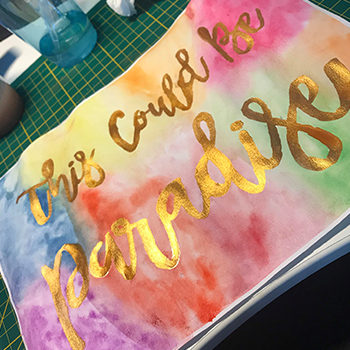 This Could Be
paradise